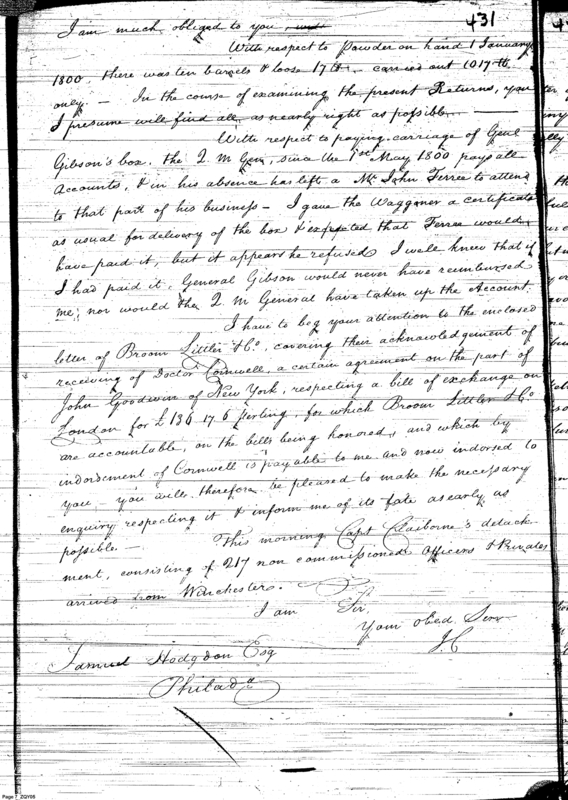 431
I am much obliged to you
With respect to Powder on hand 1 January
1800, there was ten barrels & loose 17 lb. carried out 1017 lb
only. — In the course of examining the present Returns, you
I presume will find all, as nearly right as possible. —
With respect to paying carriage of Genl
Gibson's box. the Q M Gen, since the 1st May 1800 pays all
accounts, & in his absence has left a Mr John Ferree to attend
to that part of his business — I gave the Waggoner a certificate
as usual for delivery of the box & expected that Ferree would
have paid it, but it appears he refused. I well knew that if
I had paid it, General Gibson would never have reimbursed
me; nor would the Q M General have taken up the Account.
I have to beg your attention to the enclosed
letter of Broom Littler & Co, covering their acknowledgement of
receiving of Doctor Cornwell, a certain agreement on the part of
John Goodwin of New York, respecting a bill of exchange on
London for £136 17 6 sterling, for which Broom Littler & Co
are accountable, on the bills being honored, and which by
indorsement of Cornwell is payable to me and now indorsed to
you, you will therefore be pleased to make the necessary
enquiry respecting it & inform me of its fate as early as
possible. —
This morning Capt Claiborne's detach
ment, consisting of 217 non commissioned Officers & Privates
arrived from Winchester.
I am Sir,
Your obed. Serv
J. C
Samuel Hodgdon Esq
Philada
Page 7_ZQY06